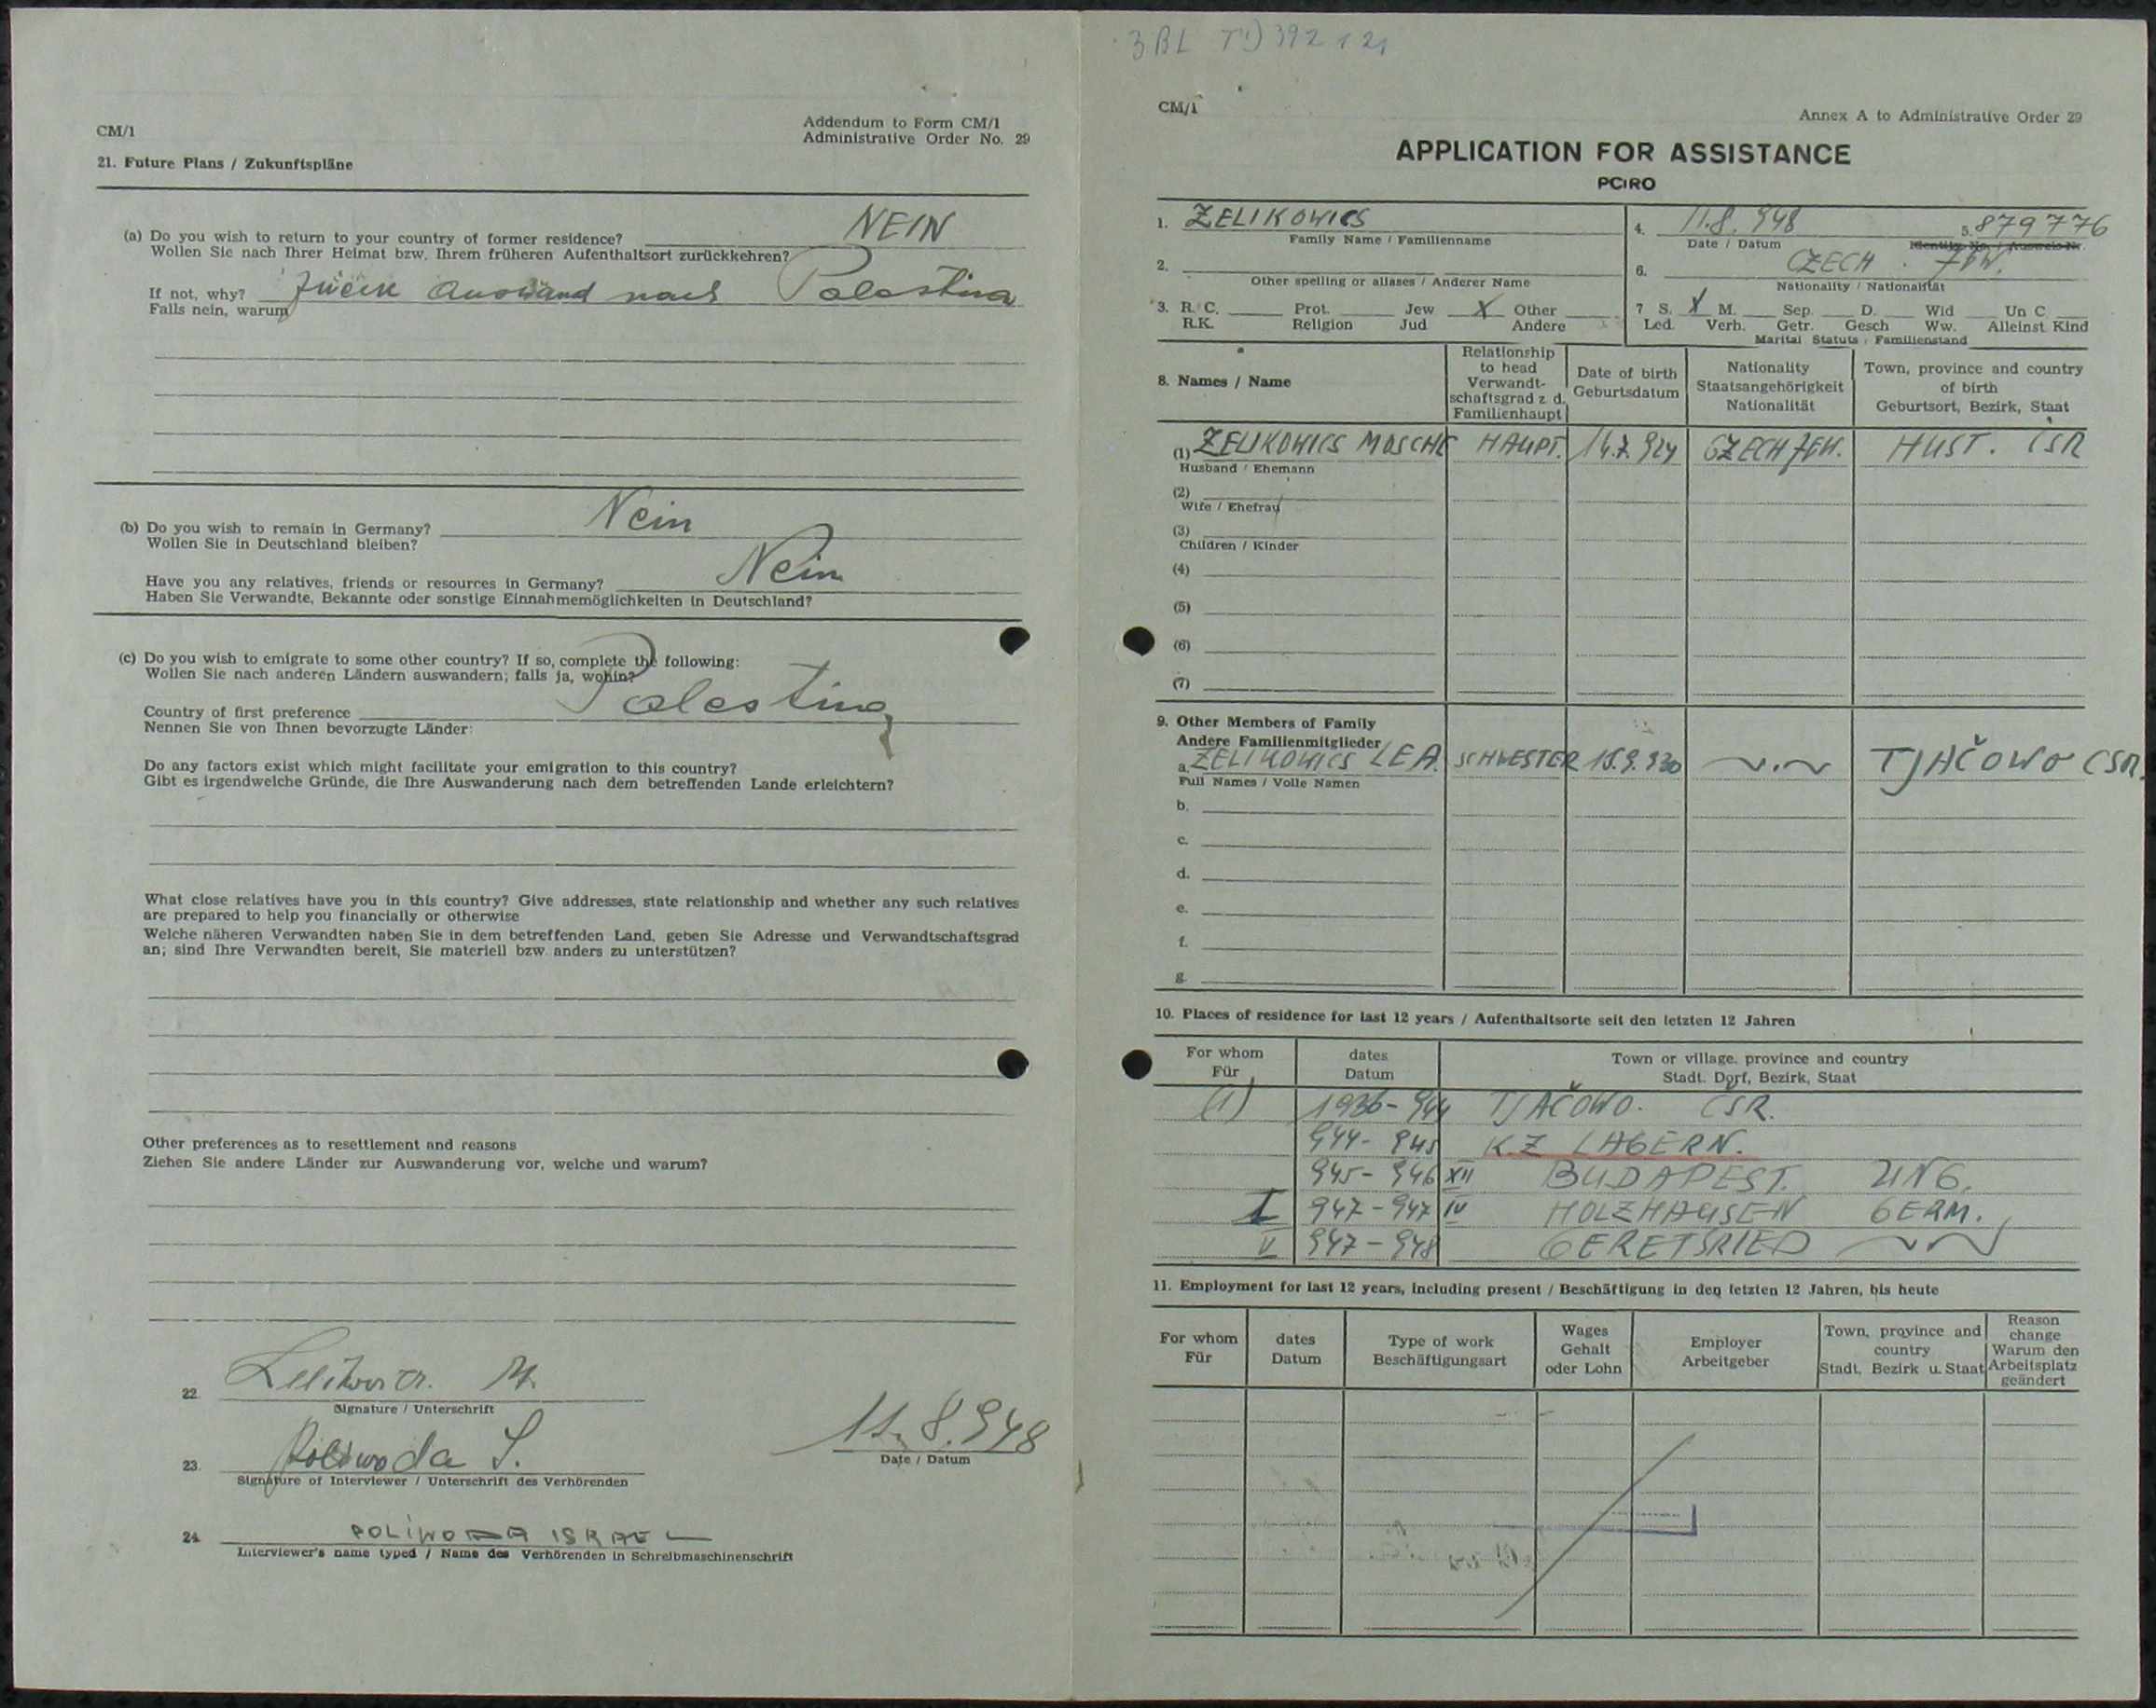 CM/1
Addendum to Form CM/1
Administrative Order No. 29
21. Future Plans / Zukunftspläne
(a) Do you wish to return to your country of former residence? NEIN
Wollen Sie nach Ihrer Heimat bzw. Ihrem früheren Aufenthaltsort zurückkehren?
If not, why? zweck Auswand nach Palestina
Falls nein, warum
(b) Do you wish to remain in Germany? Nein
Wollen Sie in Deutschland bleiben?
Have you any relatives, friends or resources in Germany? Nein
Haben Sie Verwandte, Bekannte oder sonstige Einnahmemöglichkeiten in Deutschland?
(c) Do you wish to emigrate to some other country? If so, complete the following:
Wollen Sie nach anderen Ländern auswandern; falls ja, wohin?
Country of first preference Palestina
Nennen Sie von Ihnen bevorzugte Länder:
Do any factors exist which might facilitate your emigration to this country?
Gibt es irgendwelche Gründe, die Ihre Auswanderung nach dem betreffenden Lande erleichtern?
What close relatives have you in this country? Give addresses, state relationship and whether any such relatives
are prepared to help you financially or otherwise
Welche näheren Verwandten haben Sie in dem betreffenden Land, geben Sie Adresse und Verwandtschaftsgrad
an; sind Ihre Verwandten bereit, Sie materiell bzw. anders zu unterstützen?
Other preferences as to resettlement and reasons
Ziehen Sie andere Länder zur Auswanderung vor, welche und warum?
22. M.
Signature / Unterschrift
23. Poliwoda S.
Signature of Interviewer / Unterschrift des Verhörenden
11. 8. 948
Date / Datum
24. POLIWODA ISRAEL
Interviewer's name typed / Name des Verhörenden in Schreibmaschinenschrift
3 BL TD 392 121
CM/1
Annex A to Administrative Order 29
APPLICATION FOR ASSISTANCE
PCIRO
1. ZELIKOWICS
Family Name / Familienname
4. 11.8. 948 5. 879776
Date / Datum Identity No. / Ausweis-Nr.
2.
Other spelling or aliases / Anderer Name
6. CZECH. JEW.
Nationality / Nationalität
3. R. C. Prot. Jew X Other
R.K. Religion Jud Andere
7 S. X M. Sep. D. Wid Un C
Led. Verh. Getr. Gesch Ww. Alleinst. Kind
Marital Statuts / Familienstand
8. Names / Name
Relationship to head Verwandt- schaftsgrad z. d. Familienhaupt
Date of birth Geburtsdatum
Nationality Staatsangehörigkeit Nationalität
Town, province and country of birth Geburtsort, Bezirk, Staat
(1) ZELIKOWICS MOSCHE HAUPT. 14.7.924 CZECH JEW. HUST. ČSR
Husband / Ehemann
(2)
Wife / Ehefrau
(3)
Children / Kinder
(4)
(5)
(6)
(7)
9. Other Members of Family
Andere Familienmitglieder
a. ZELIKOWICS LEA. SCHWESTER 15.9.930 TJAČOWO ČSR.
Full Names / Volle Namen
b.
c.
d.
e.
f.
g.
10. Places of residence for last 12 years / Aufenthaltsorte seit den letzten 12 Jahren
For whom Für
dates Datum
Town or village, province and country
Stadt, Dorf, Bezirk, Staat
(1) 1936-944 TJAČOWO. ČSR.
944-945 K.Z LAGERN.
945-946 XII BUDAPEST. UNG.
I 947-947 IV HOLZHAUSEN GERM.
V 947-948 GERETSRIED
11. Employment for last 12 years, including present / Beschäftigung in den letzten 12 Jahren, bis heute
For whom Für
dates Datum
Type of work Beschäftigungsart
Wages Gehalt oder Lohn
Employer Arbeitgeber
Town, province and country Stadt, Bezirk u. Staat
Reason change Warum den Arbeitsplatz geändert